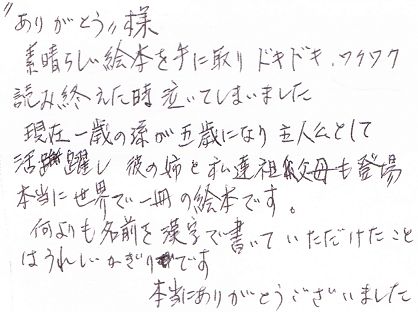 "ありがとう"様
素晴らしい絵本を手に取り ドキドキ、ワクワク
読み終えた時泣いてしまいました
現在一歳の孫が五歳になり主人公として
活躍し 彼の姉と私達祖父母も登場
本当に世界で一冊の絵本です。
何よりも名前を漢字で書いていただけたこと
はうれしいかぎりです
本当にありがとうございました